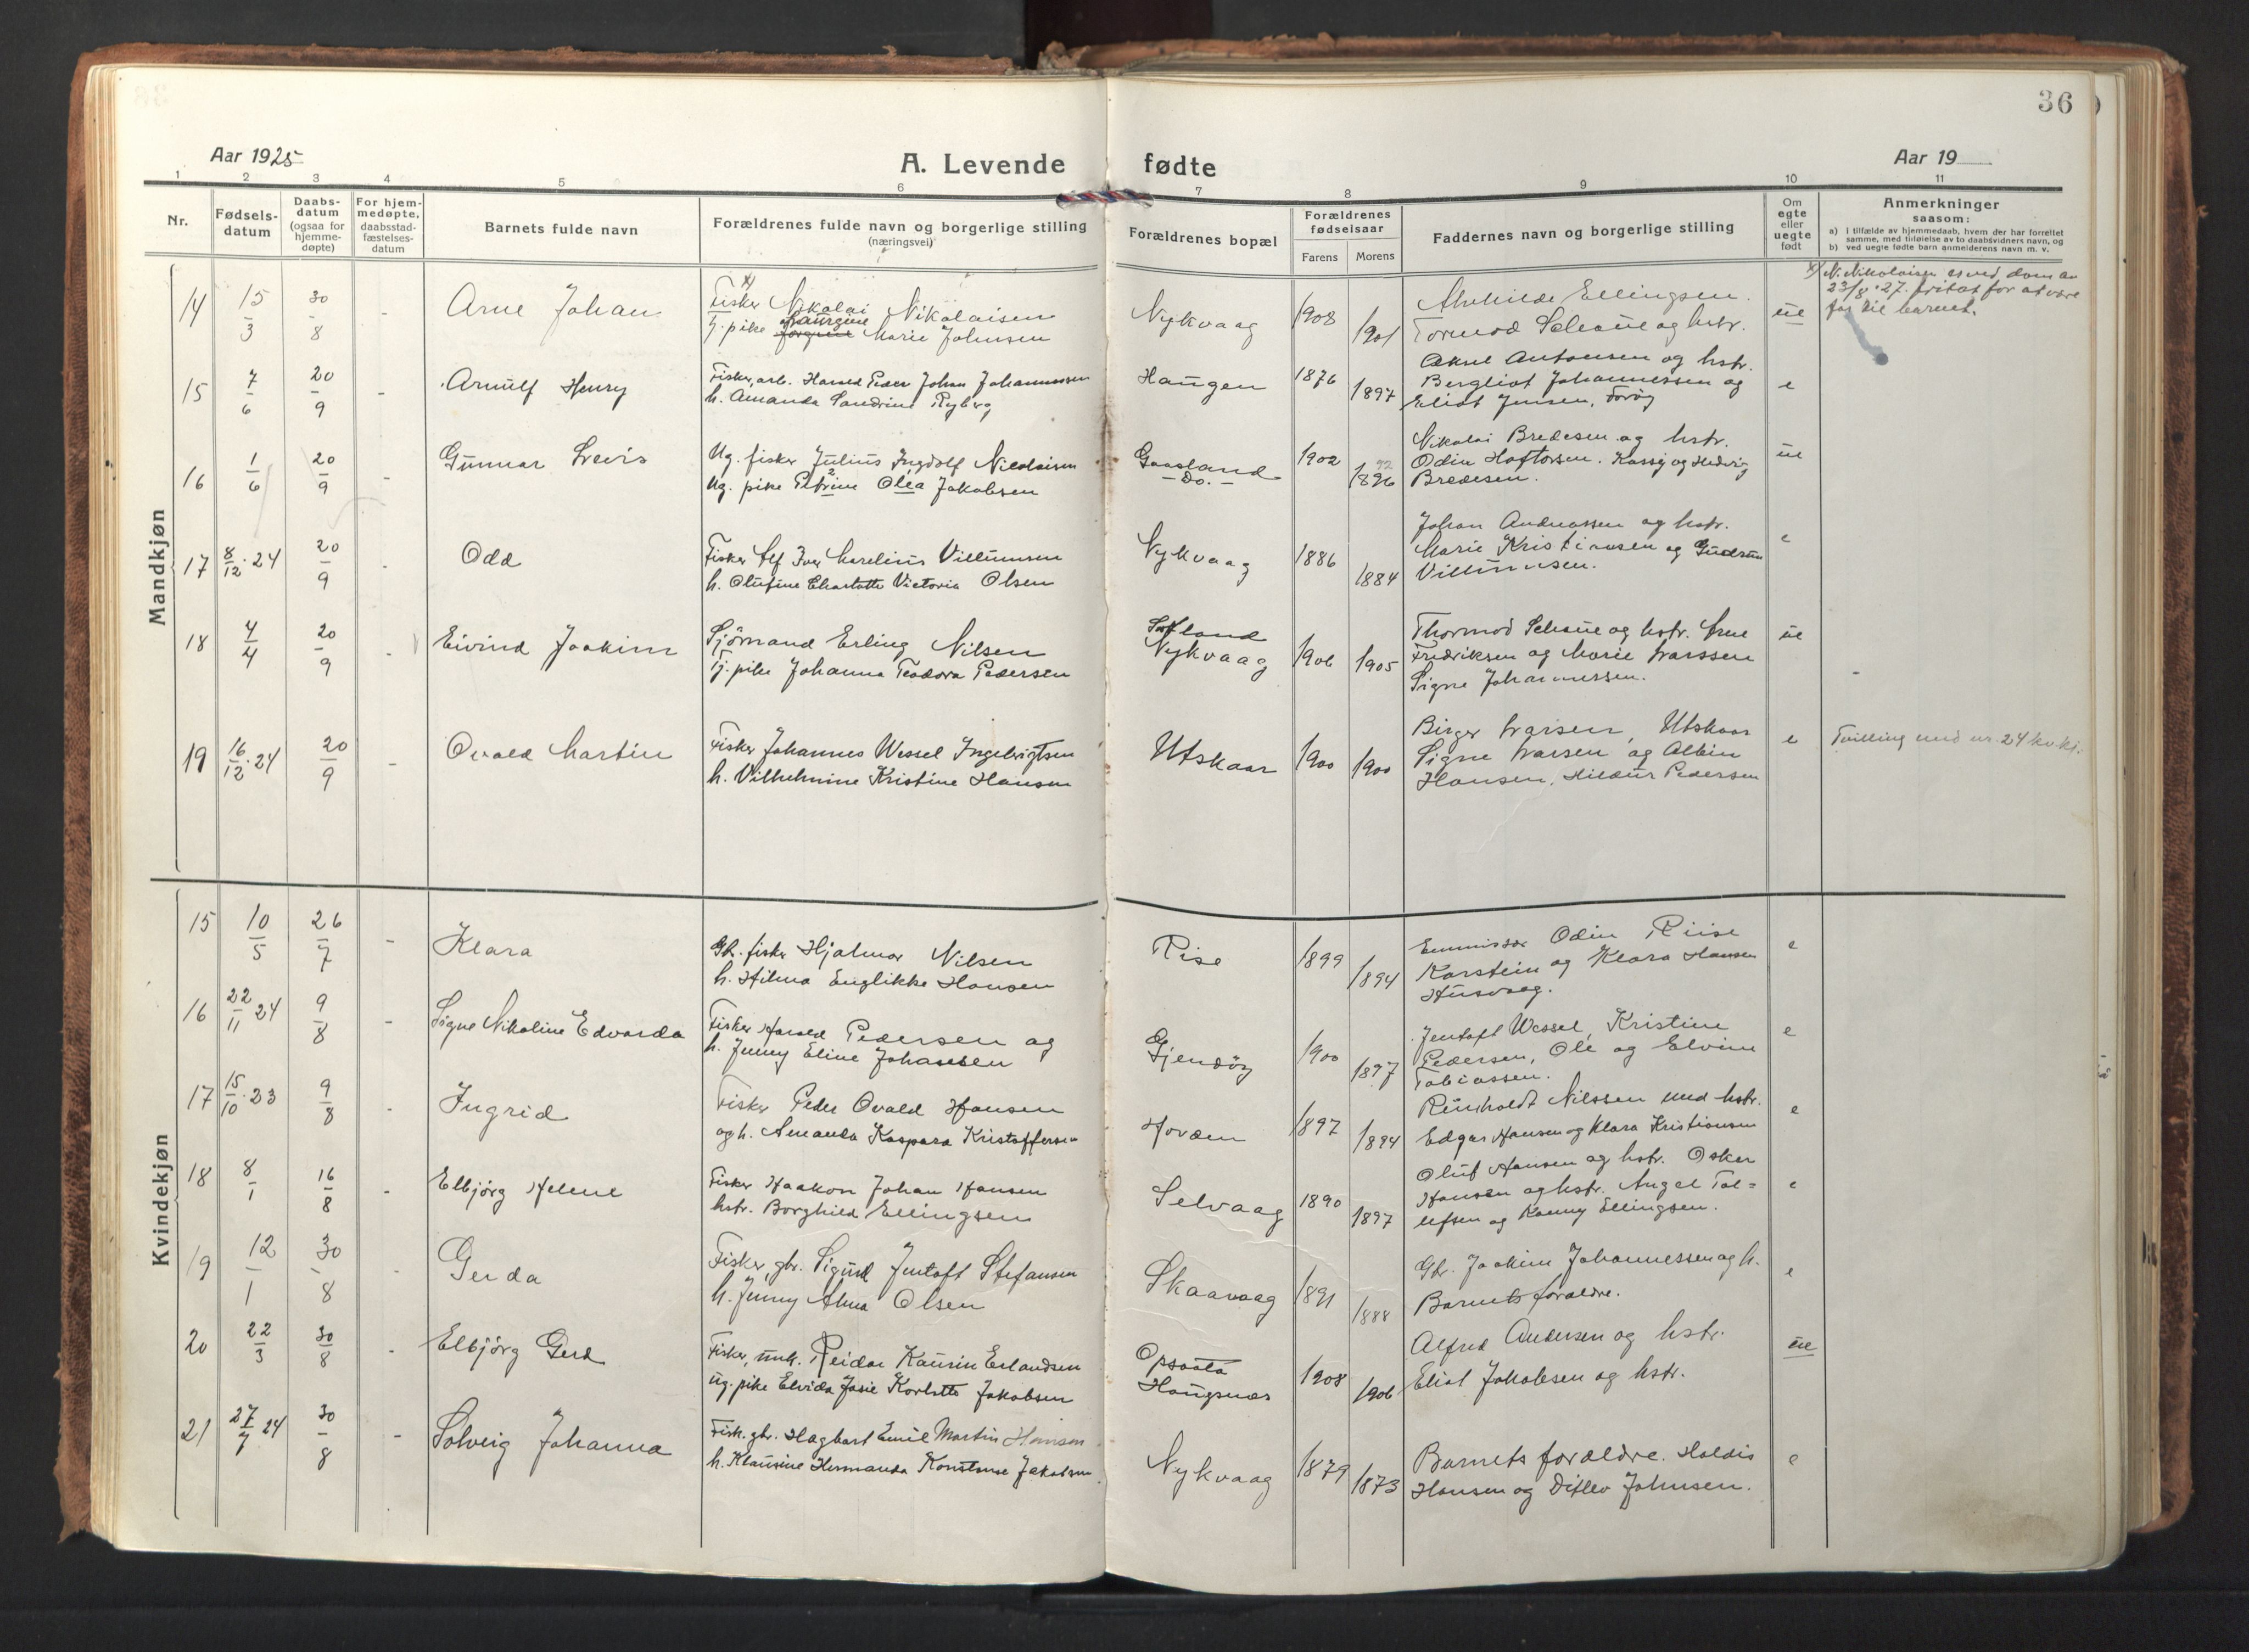 36
Aar 1925
A. Levende fødte
Aar 19
1 2 3 4 5 6 7 8 9 10 11
Nr.
Fødsels-
datum
Daabs-
datum
(ogsaa for
hjemme-
døpte)
For hjem-
medøpte,
daabsstad-
fæstelses-
datum
Barnets fulde navn
Forældrenes fulde navn og borgerlige stilling
(næringsvei)
Forældrenes bopæl
Forældrenes
fødselsaar
Farens Morens
Faddernes navn og borgerlige stilling
Om
egte
eller
uegte
født
Anmerkninger
saasom:
a) i tilfælde av hjemmedaab, hvem der har forrettet
samme, med tilføielse av to daabsvidners navn, og
b) ved uegte fødte barn anmelderens navn m. v.
Mandkjøn
14 15/3 30/8 - Arne Johan
x)
Fisker Nikolai Nikolaisen
Tj. pike Laurgine Marie Johnsen
Nykvaag 1908 1901
Ellingsen.
Tormod Schøue og hstr.
ue
x) N. Nikolaisen er ved dom av
23/8 27. fritat for at være
far til barnet.
15 7/6 20/9 - Arnulf Henry
Fisker, arb. Harald Peder Johan Johannessen
h. Amanda Sandrine Ryberg
Haugen 1876 1897
Aksel Antonsen og hstr.
Bergliot Johannessen og
Eliot Jensen,
e
16 1/6 20/9 - Gunnar Levis
Ug. fisker Julius Ingdolf Nicolaisen
Ug. pike Petrine Olea Jakobsen
Gaasland
- Do. -
1902 1896
Nikolai Bredesen og hstr.
Odin Haftorsen. Kassy og Hedvig
Bredesen.
ue
17 8/12 24 20/9 - Odd
Fisker Alf Iver Marelius Villumsen
h. Olufine Charlotte Victoria Olsen
Nykvaag 1886 1884
Johan Andreassen og hstr.
Marie Kristiansen og Gudrun
Villumsen.
e
18 4/4 20/9 - Eivind Joakim
Sjömand Erling Nilsen
Tj. pike Johanna Teodora Pedersen
Nykvaag 1906 1905
Thormod Schøue og hstr. Arne
Fredriksen og Marie Larssen
Signe Johannessen.
ue
19 16/12 24 20/9 - Ovald Martin
Fisker Johannes Wessel Ingebrigtsen
h. Vilhelmine Kristine Hansen
Utskaar 1900 1900
Birger Larsen, Utskaar
Signe Larsen og Albin
Hansen, Hildur Pedersen
e
Tvilling med nr. 24 kv.kj.
Kvindekjøn
15 10/5 26/7 - Klara
Gbr. fisker Hjalmar Nilsen
h. Hilma Englikke Hansen
Rise 1899 1894
Emmissær Odin Riise
Karstein og Klara Hansen
Husvaag.
e
16 22/11 24 9/8 - Signe Nikoline Edvarda
Fisker Harald Pedersen og
h. Jenny Eline Johansen
Gjendöy 1900 1897
Jentoft Wessel, Kristine
Pedersen, Ole og Elvine
Tobiassen.
e
17 15/10 23 9/8 - Ingrid
Fisker Peder Ovald Hansen
og h. Amanda Kaspara Kristoffersen
Hovden 1897 1894
Reinholdt Nilssen med hstr.
Edgar Hansen og Klara Kristiansen
e
18 8/1 16/8 - Elbjörg Helene
Fisker Haakon Johan Hansen
hstr. Borghild Ellingsen
Selvaag 1890 1897
Oluf Hansen og hstr. Oskar
Hansen og hstr. Angel Tol=
lefsen og Ellingsen.
e
19 12/1 30/8 - Gerda
Fisker, gbr. Sigurd Jentoft Stefansen
h. Jenny Alma Olsen
Skaavaag 1891 1888
Gbr. Joakim Johannessen og h.
Barnets forældre.
e
20 22/3 30/8 - Elbjörg Gerd
Fisker, unk. Reidar Kaurin Erlandsen
ug. pike Elvida Josie Korlette Jakobsen
Haugsnes 1908 1906
Alfred Andersen og hstr.
Eliot Jakobsen og hstr.
ue
21 27/7 24 30/8 - Solveig Johanna
Fisk. gbr. Hagbart Emil Martin Hansen
h. Klausine Hermanda Konstanse Jakobsen.
Nykvaag 1879 1873
Barnets forældre. Haldis
Hansen og Ditlev Johnsen.
e